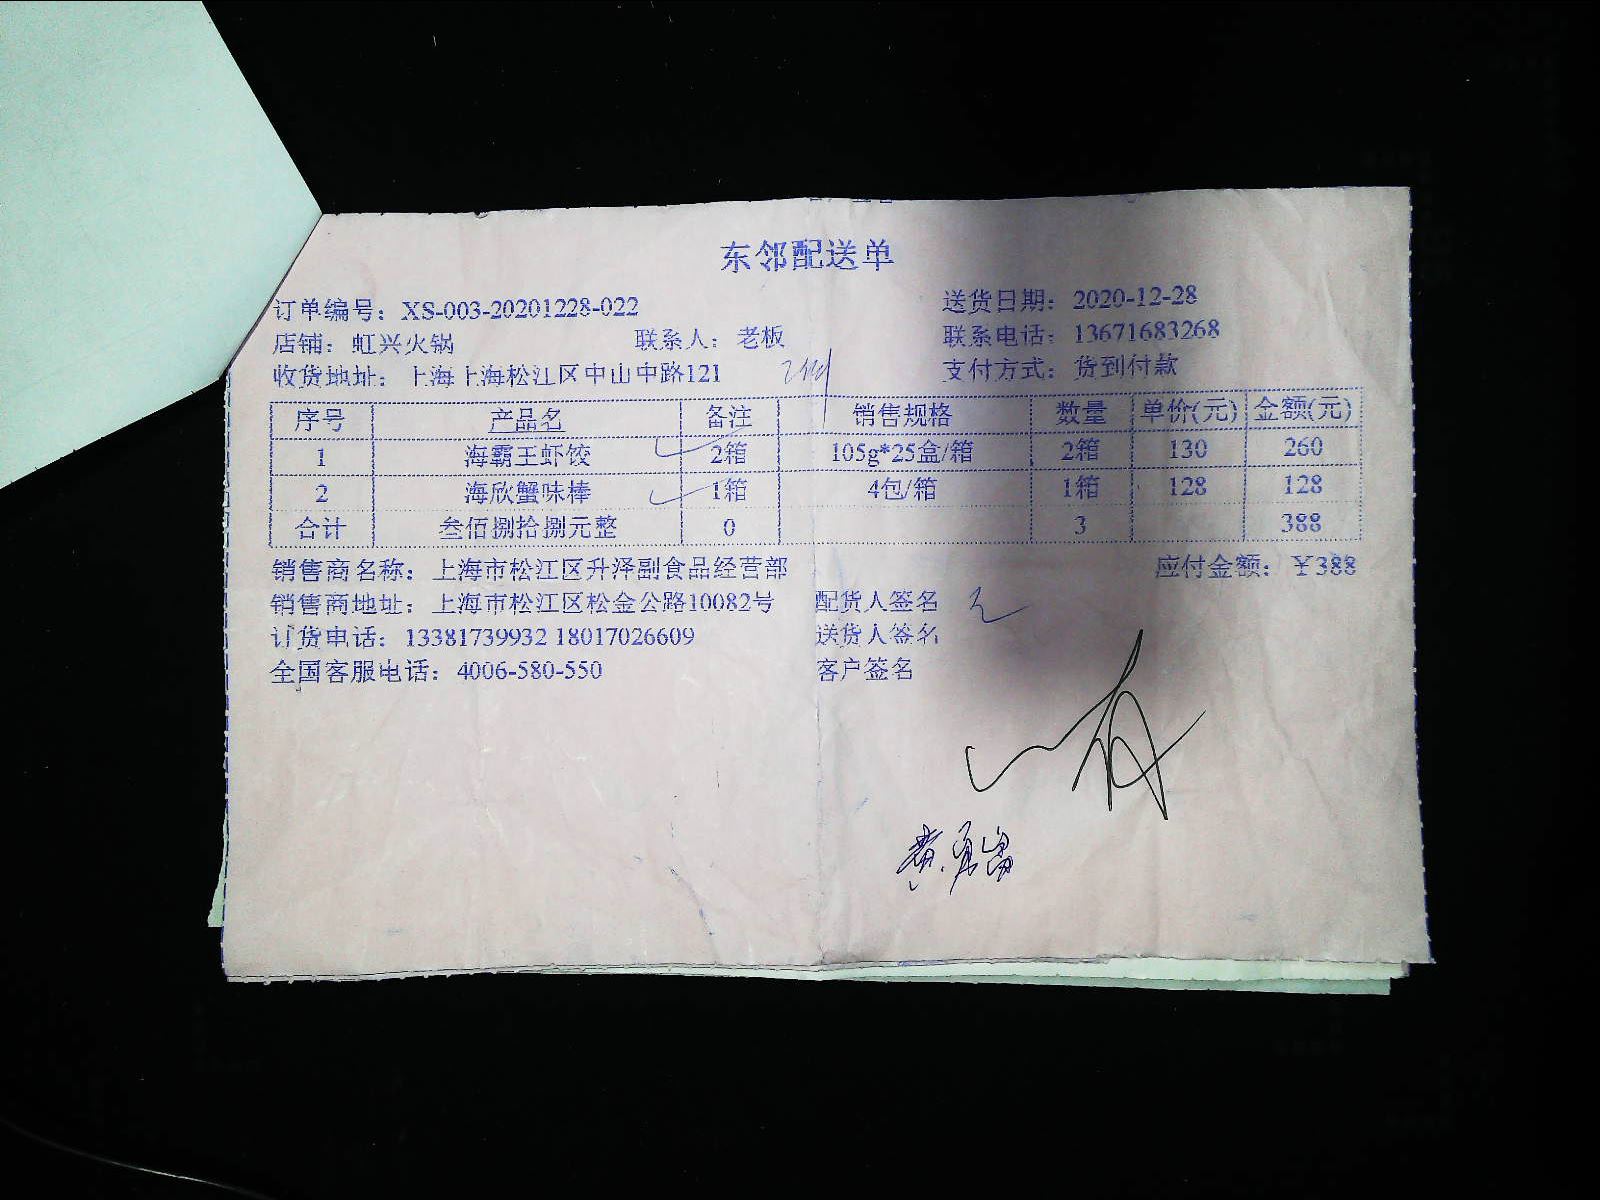 东邻配送单
订单编号：XS-003-20201228-022 送货日期：2020-12-28
店铺：虹兴火锅 联系人：老板 联系电话：13671683268
收货地址：上海上海松江区中山中路121 支付方式：货到付款
序号 产品名 备注 销售规格 数量 单价(元) 金额(元)
1 海霸王虾饺 2箱 105g*25盒/箱 2箱 130 260
2 海欣蟹味棒 1箱 4包/箱 1箱 128 128
合计 叁佰捌拾捌元整 0 3 388
销售商名称：上海市松江区升泽副食品经营部 应付金额：￥388
销售商地址：上海市松江区松金公路10082号 配货人签名
订货电话：13381739932 18017026609 送货人签名
全国客服电话：4006-580-550 客户签名